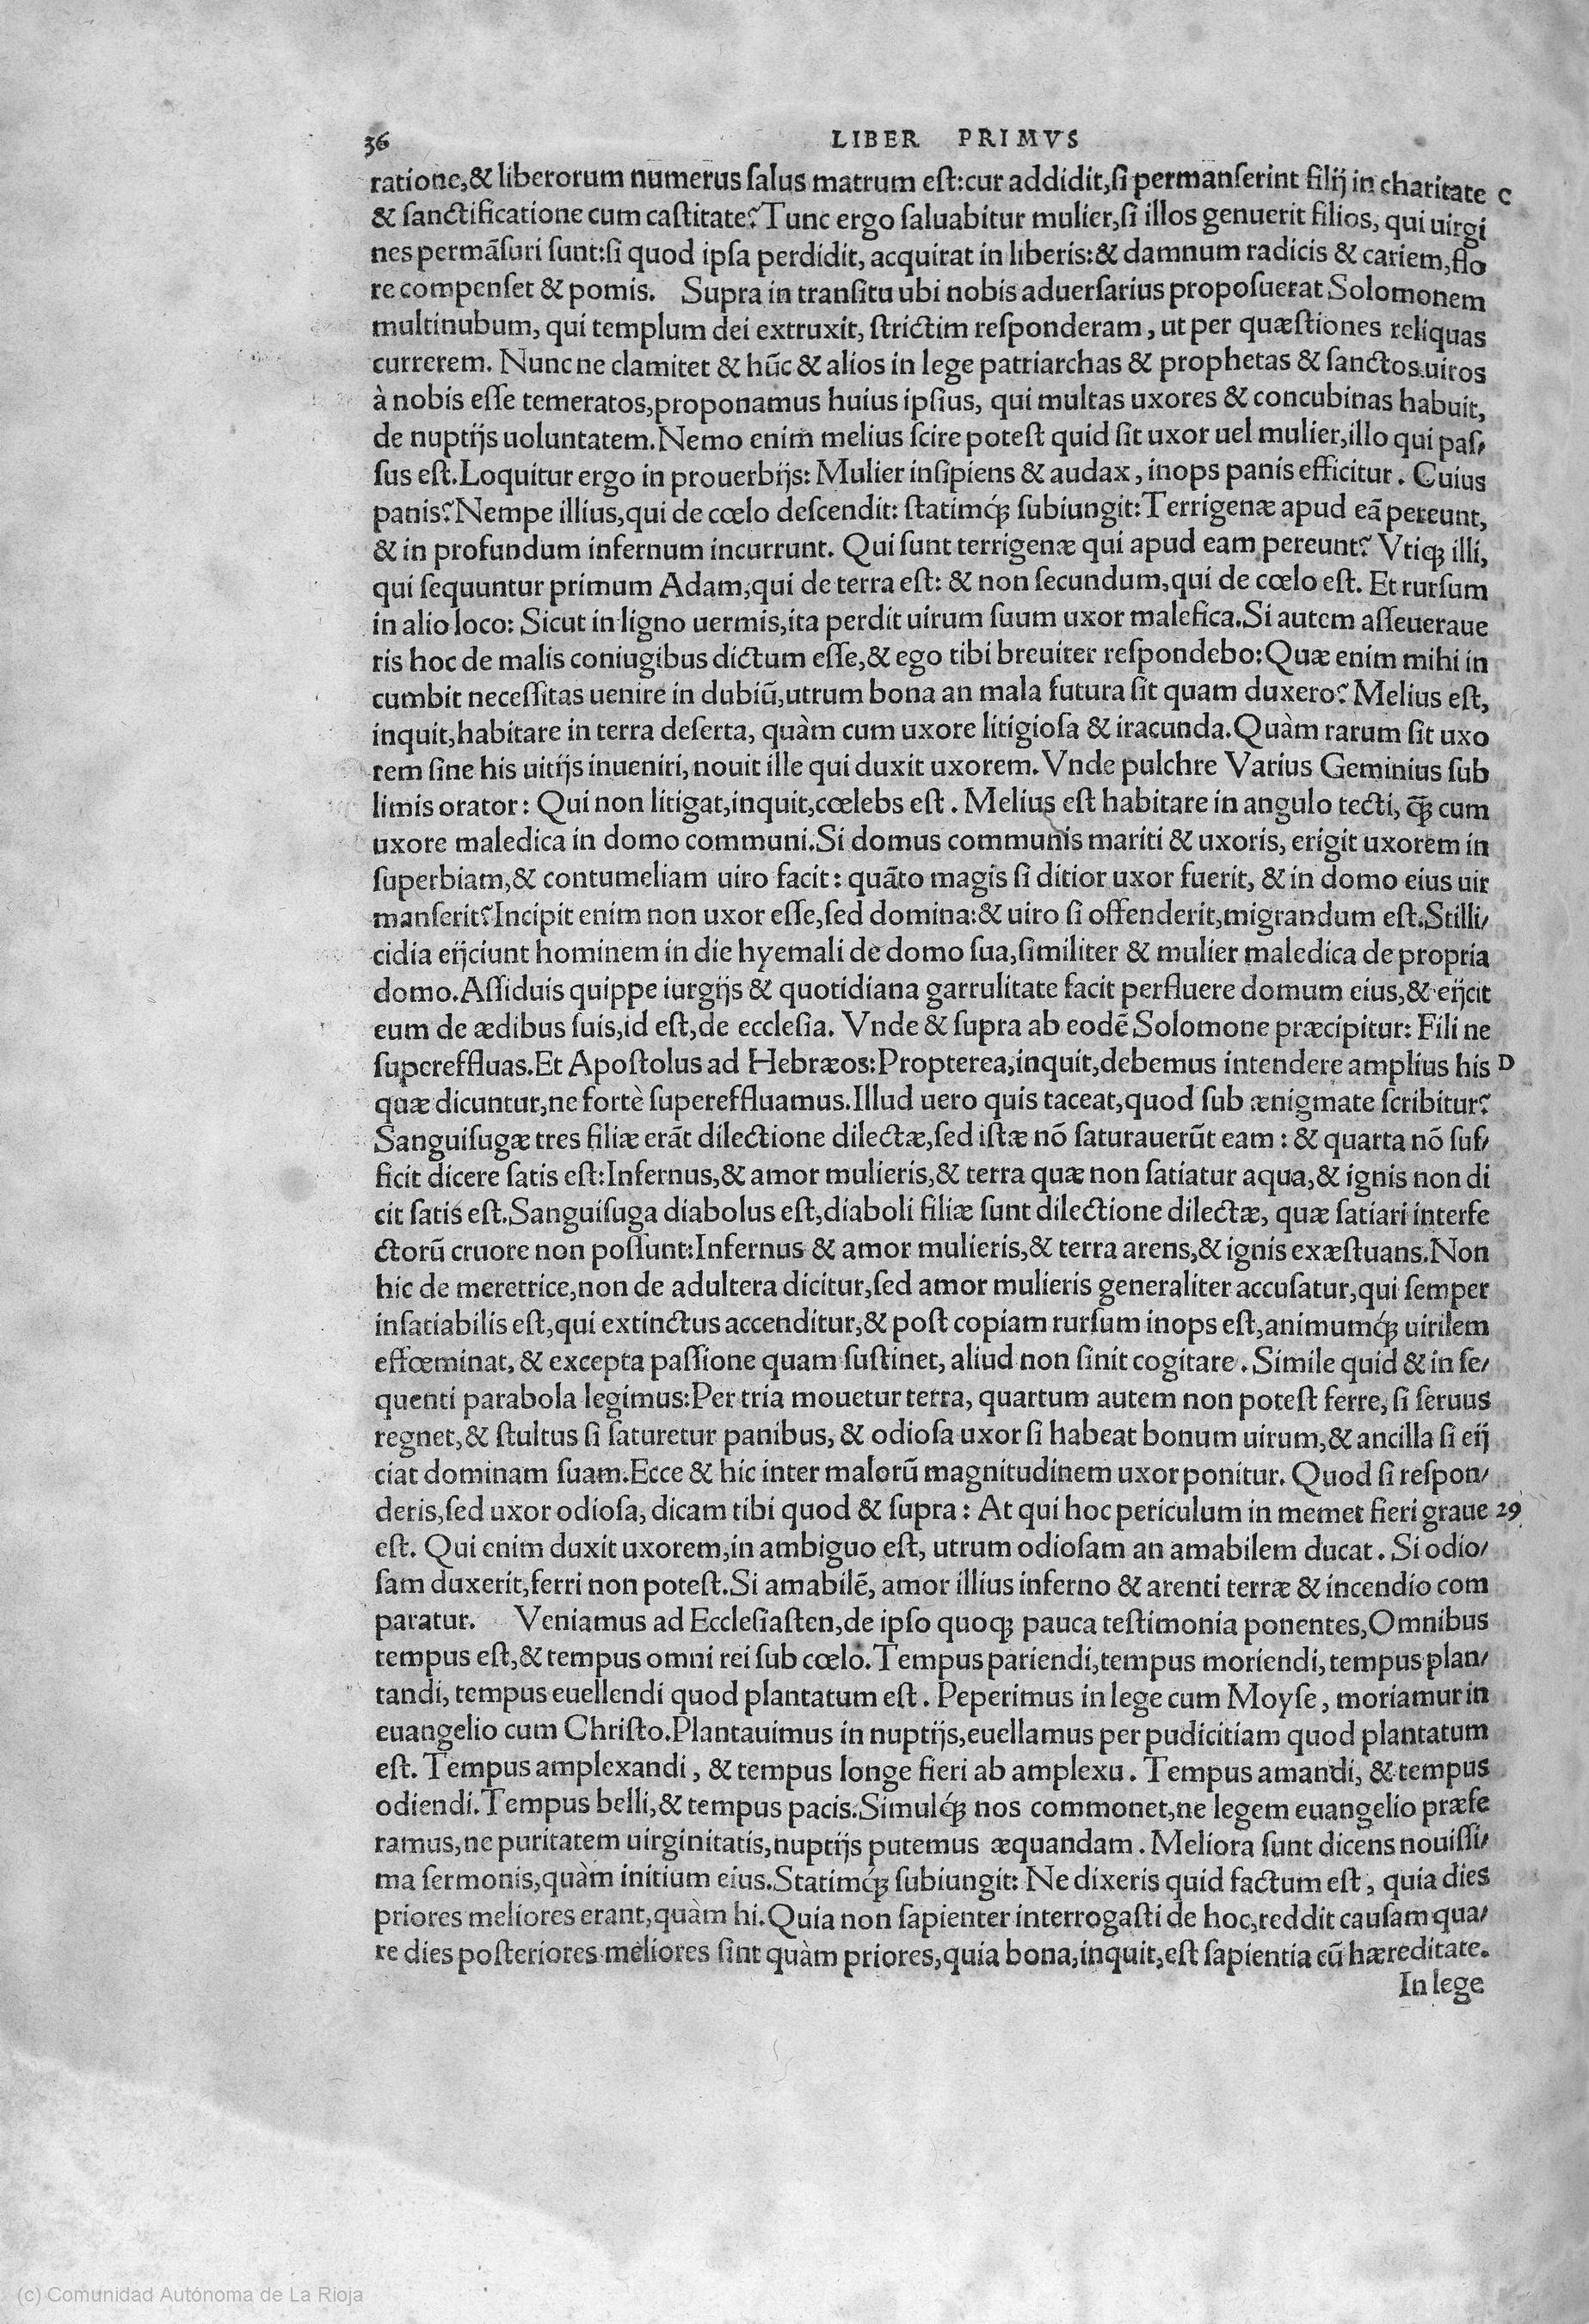 36 LIBER PRIMVS
ratione,& liberorum numerus salus matrum est:cur addidit,si permanserint filij in charitate C
& sanctificatione cum castitate? Tunc ergo saluabitur mulier,si illos genuerit filios, qui uirgi
nes permãsuri sunt:si quod ipsa perdidit, acquirat in liberis:& damnum radicis & cariem,flo
re compenset & pomis. Supra in transitu ubi nobis aduersarius proposuerat Solomonem
multinubum, qui templum dei extruxit, strictim responderam, ut per quæstiones reliquas
currerem. Nunc ne clamitet & hũc & alios in lege patriarchas & prophetas & sanctos uiros
à nobis esse temeratos,proponamus huius ipsius, qui multas uxores & concubinas habuit,
de nuptijs uoluntatem. Nemo enim melius scire potest quid sit uxor uel mulier,illo qui pas/
sus est. Loquitur ergo in prouerbijs: Mulier insipiens & audax, inops panis efficitur. Cuius
panis? Nempe illius,qui de cœlo descendit: statimq́ꝫ subiungit: Terrigenæ apud eã pereunt,
& in profundum infernum incurrunt. Qui sunt terrigenæ qui apud eam pereunt? Vtiqꝫ illi,
qui sequuntur primum Adam,qui de terra est: & non secundum,qui de cœlo est. Et rursum
in alio loco: Sicut in ligno uermis,ita perdit uirum suum uxor malefica. Si autem asseueraue
ris hoc de malis coniugibus dictum esse,& ego tibi breuiter respondebo: Quæ enim mihi in
cumbit necessitas uenire in dubiũ,utrum bona an mala futura sit quam duxero? Melius est,
inquit,habitare in terra deserta, quàm cum uxore litigiosa & iracunda. Quàm rarum sit uxo
rem sine his uitijs inueniri, nouit ille qui duxit uxorem. Vnde pulchre Varius Geminius sub
limis orator: Qui non litigat,inquit,cœlebs est. Melius est habitare in angulo tecti, q̃ꝫ cum
uxore maledica in domo communi. Si domus communis mariti & uxoris, erigit uxorem in
superbiam,& contumeliam uiro facit: quãto magis si ditior uxor fuerit, & in domo eius uir
manserit? Incipit enim non uxor esse,sed domina:& uiro si offenderit,migrandum est. Stilli/
cidia eijciunt hominem in die hyemali de domo sua,similiter & mulier maledica de propria
domo. Assiduis quippe iurgijs & quotidiana garrulitate facit perfluere domum eius,& eijcit
eum de ædibus suis,id est,de ecclesia. Vnde & supra ab eodẽ Solomone præcipitur: Fili ne
supereffluas. Et Apostolus ad Hebræos: Propterea,inquit,debemus intendere amplius his D
quæ dicuntur,ne fortè supereffluamus. Illud uero quis taceat,quod sub ænigmate scribitur?
Sanguisugæ tres filiæ erãt dilectione dilectæ,sed istæ nõ saturauerũt eam: & quarta nõ suf/
ficit dicere satis est: Infernus,& amor mulieris,& terra quæ non satiatur aqua,& ignis non di
cit satis est. Sanguisuga diabolus est,diaboli filiæ sunt dilectione dilectæ, quæ satiari interfe
ctorũ cruore non possunt: Infernus & amor mulieris,& terra arens,& ignis exæstuans. Non
hic de meretrice,non de adultera dicitur,sed amor mulieris generaliter accusatur,qui semper
insatiabilis est,qui extinctus accenditur,& post copiam rursum inops est,animumq́ꝫ uirilem
effœminat, & excepta passione quam sustinet, aliud non sinit cogitare. Simile quid & in se/
quenti parabola legimus: Per tria mouetur terra, quartum autem non potest ferre, si seruus
regnet,& stultus si saturetur panibus, & odiosa uxor si habeat bonum uirum,& ancilla si eij
ciat dominam suam. Ecce & hic inter malorũ magnitudinem uxor ponitur. Quod si respon/
deris,sed uxor odiosa, dicam tibi quod & supra: At qui hoc periculum in memet fieri graue 29
est. Qui enim duxit uxorem,in ambiguo est, utrum odiosam an amabilem ducat. Si odio/
sam duxerit,ferri non potest. Si amabilẽ, amor illius inferno & arenti terræ & incendio com
paratur. Veniamus ad Ecclesiasten,de ipso quoqꝫ pauca testimonia ponentes, Omnibus
tempus est,& tempus omni rei sub cœlo. Tempus pariendi,tempus moriendi, tempus plan/
tandi, tempus euellendi quod plantatum est. Peperimus in lege cum Moyse, moriamur in
euangelio cum Christo. Plantauimus in nuptijs,euellamus per pudicitiam quod plantatum
est. Tempus amplexandi, & tempus longe fieri ab amplexu. Tempus amandi, & tempus
odiendi. Tempus belli,& tempus pacis. Simulq́ꝫ nos commonet,ne legem euangelio præfe
ramus,ne puritatem uirginitatis,nuptijs putemus æquandam. Meliora sunt dicens nouissi/
ma sermonis,quàm initium eius. Statimq́ꝫ subiungit: Ne dixeris quid factum est, quia dies
priores meliores erant,quàm hi. Quia non sapienter interrogasti de hoc,reddit causam qua/
re dies posteriores meliores sint quàm priores,quia bona,inquit,est sapientia cũ hæreditate.
In lege
(c) Comunidad Autónoma de La Rioja